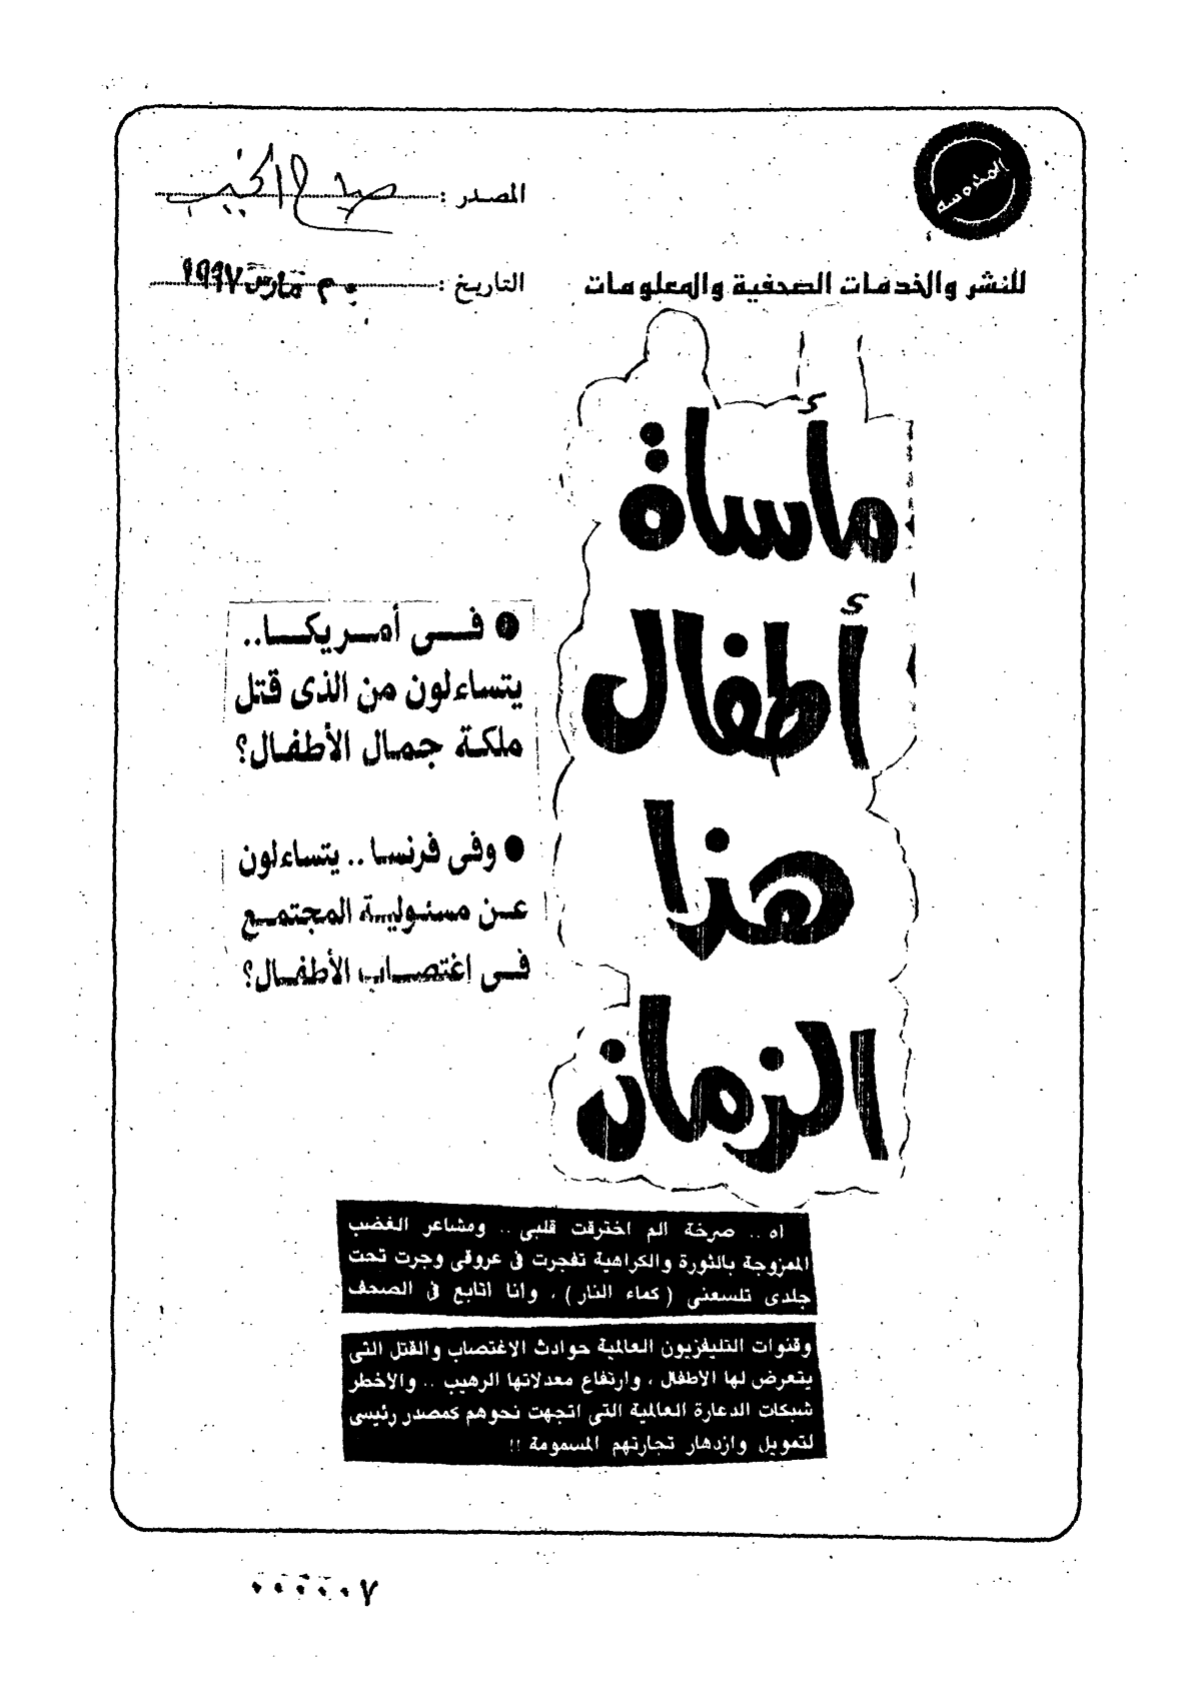 المصدر : صباح الخير
التاريخ : م مارس ١٩٩٧
للنشر والخدمات الصحفية والمعلومات
مأساة
أطفال
هذا
الزمان
● فى أمريكا..
يتساءلون من الذى قتل
ملكة جمال الأطفال؟
● وفى فرنسا .. يتساءلون
عن مسئولية المجتمع
فى اغتصاب الأطفال؟
اه .. صرخة الم اخترقت قلبى .. ومشاعر الغضب
الممزوجة بالثورة والكراهية تفجرت فى عروقى وجرت تحت
جلدى تلسعنى ( كماء النار ) ، وانا اتابع فى الصحف
وقنوات التليفزيون العالمية حوادث الاغتصاب والقتل التى
يتعرض لها الاطفال ، وارتفاع معدلاتها الرهيب .. والاخطر
شبكات الدعارة العالمية التى اتجهت نحوهم كمصدر رئيسى
لتمويل وازدهار تجارتهم المسمومة !!
٠٠٠٠٠٧